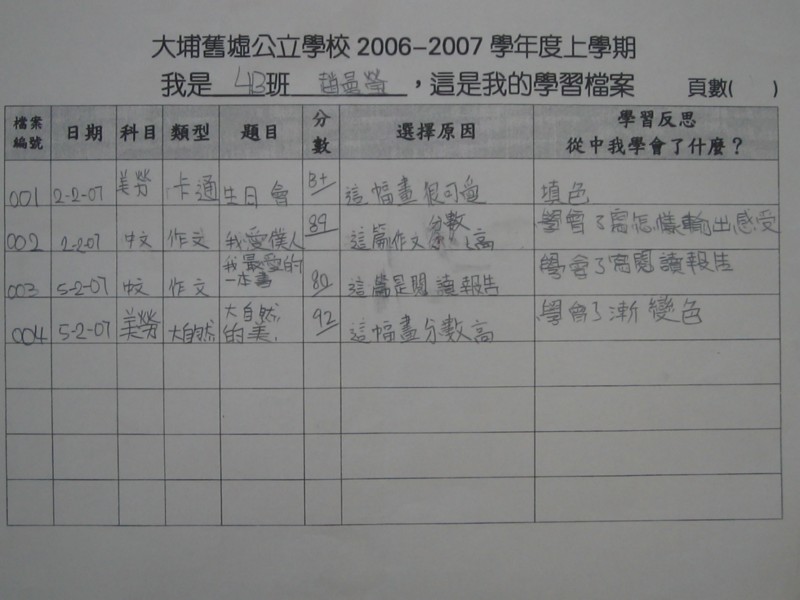 大埔舊墟公立學校 2006-2007 學年度上學期
我是 4B班 趙曼瑩 ,這是我的學習檔案 頁數( )
檔案編號 日期 科目 類型 題目 分數 選擇原因 學習反思 從中我學會了什麼?
001 2-2-07 美勞 卡通 生日會 B+ 這幅畫很可愛 填色
002 2-2-07 中文 作文 我愛僕人 89 這篇作文分數 高 學會了寫怎樣輸出感受
003 5-2-07 中文 作文 我最愛的一本書 80 這篇是閱讀報告 學會了寫閱讀報告
004 5-2-07 美勞 大自然 大自然的美. 92 這幅畫分數高 學會了漸變色